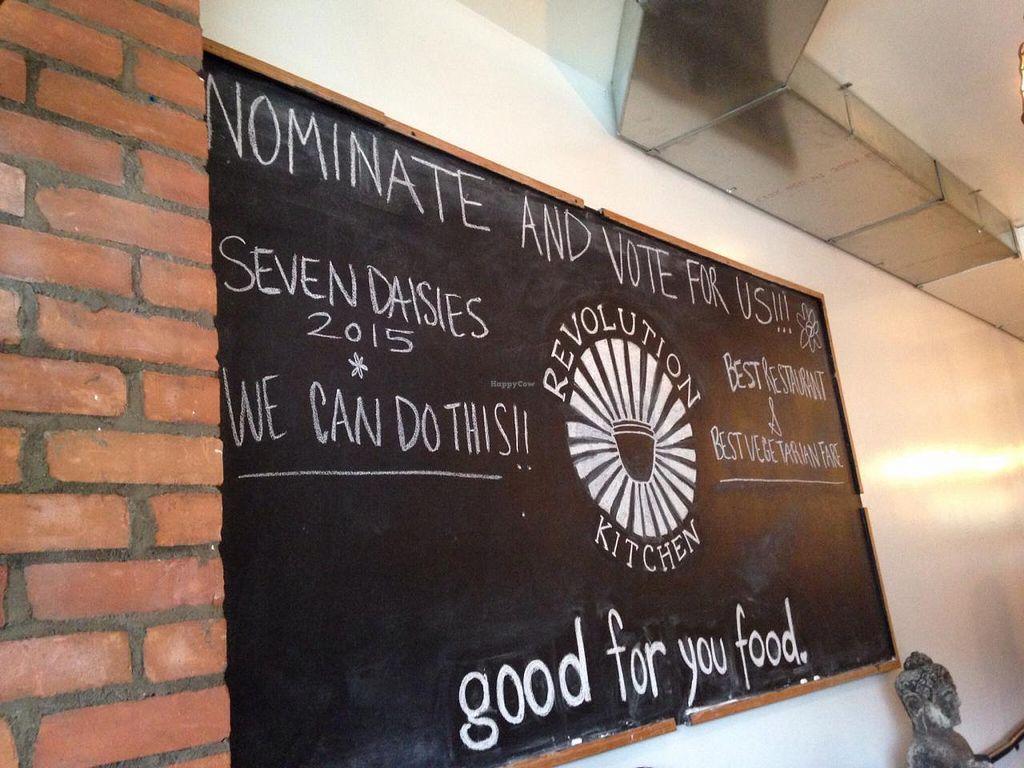 NOMINATE AND VOTE FOR US!!!
SEVEN DAISIES
2015
WE CAN DO THIS!!
REVOLUTION
KITCHEN
BEST RESTAURANT
&
BEST VEGETARIAN FARE
good for you food.
HappyCow